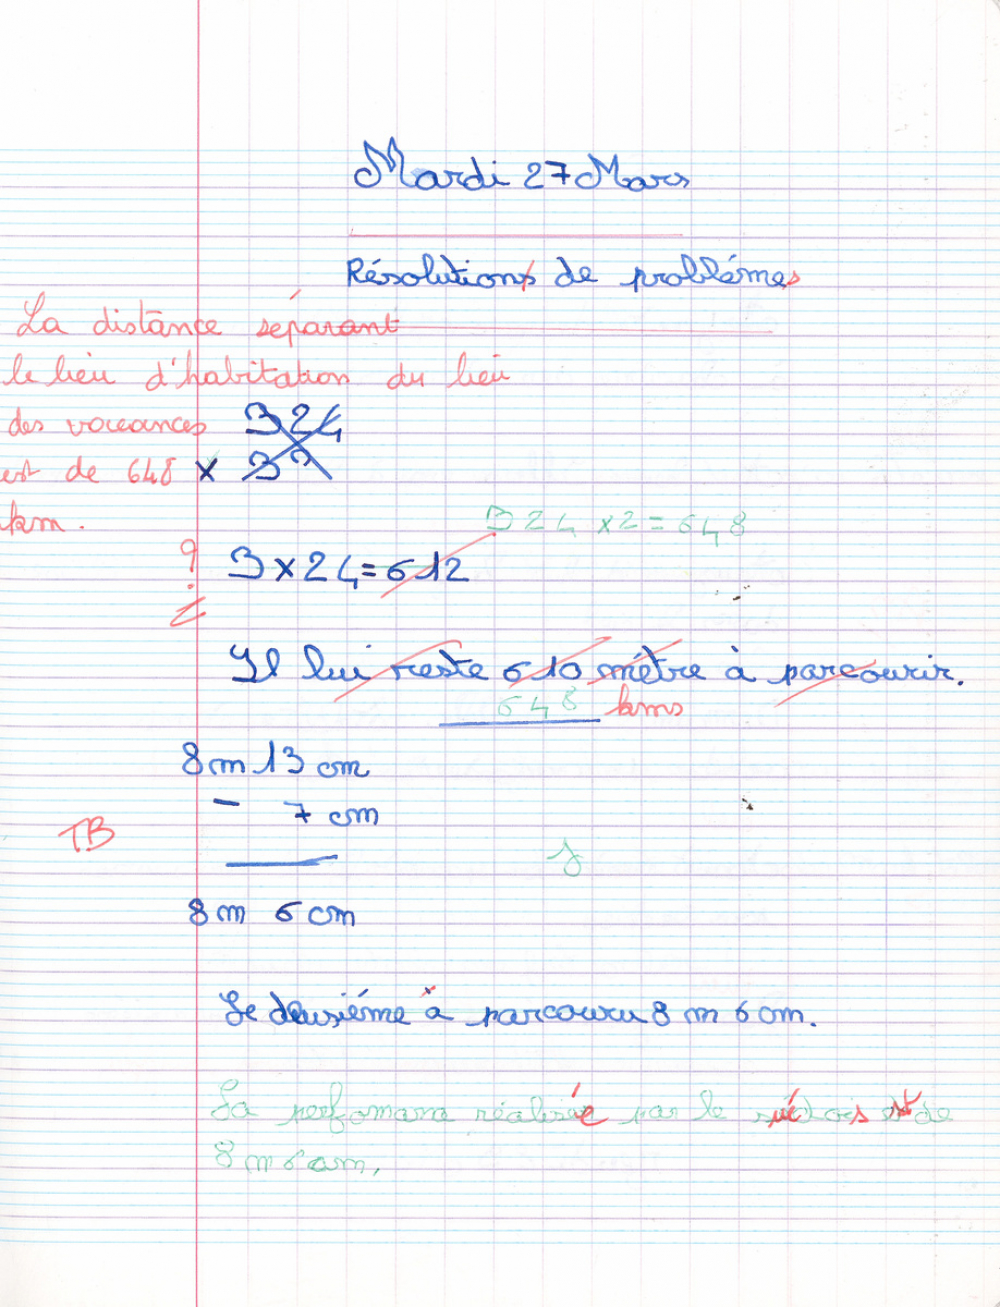 Mardi 27 Mars
Résolutions de problémes
La distance séparant
le lieu d'habitation du lieu
des vacances
est de 648
km.
324
x 33
324 x2=648
?
3x24=612
Il lui reste 610 métre à parcourir.
648 kms
8m 13 cm
- 7 cm
TB
8m 6 cm
Le deusiéme à parcouru 8 m 6 cm.
La performana réalisée par le suédois est de
8 m 6 cm,